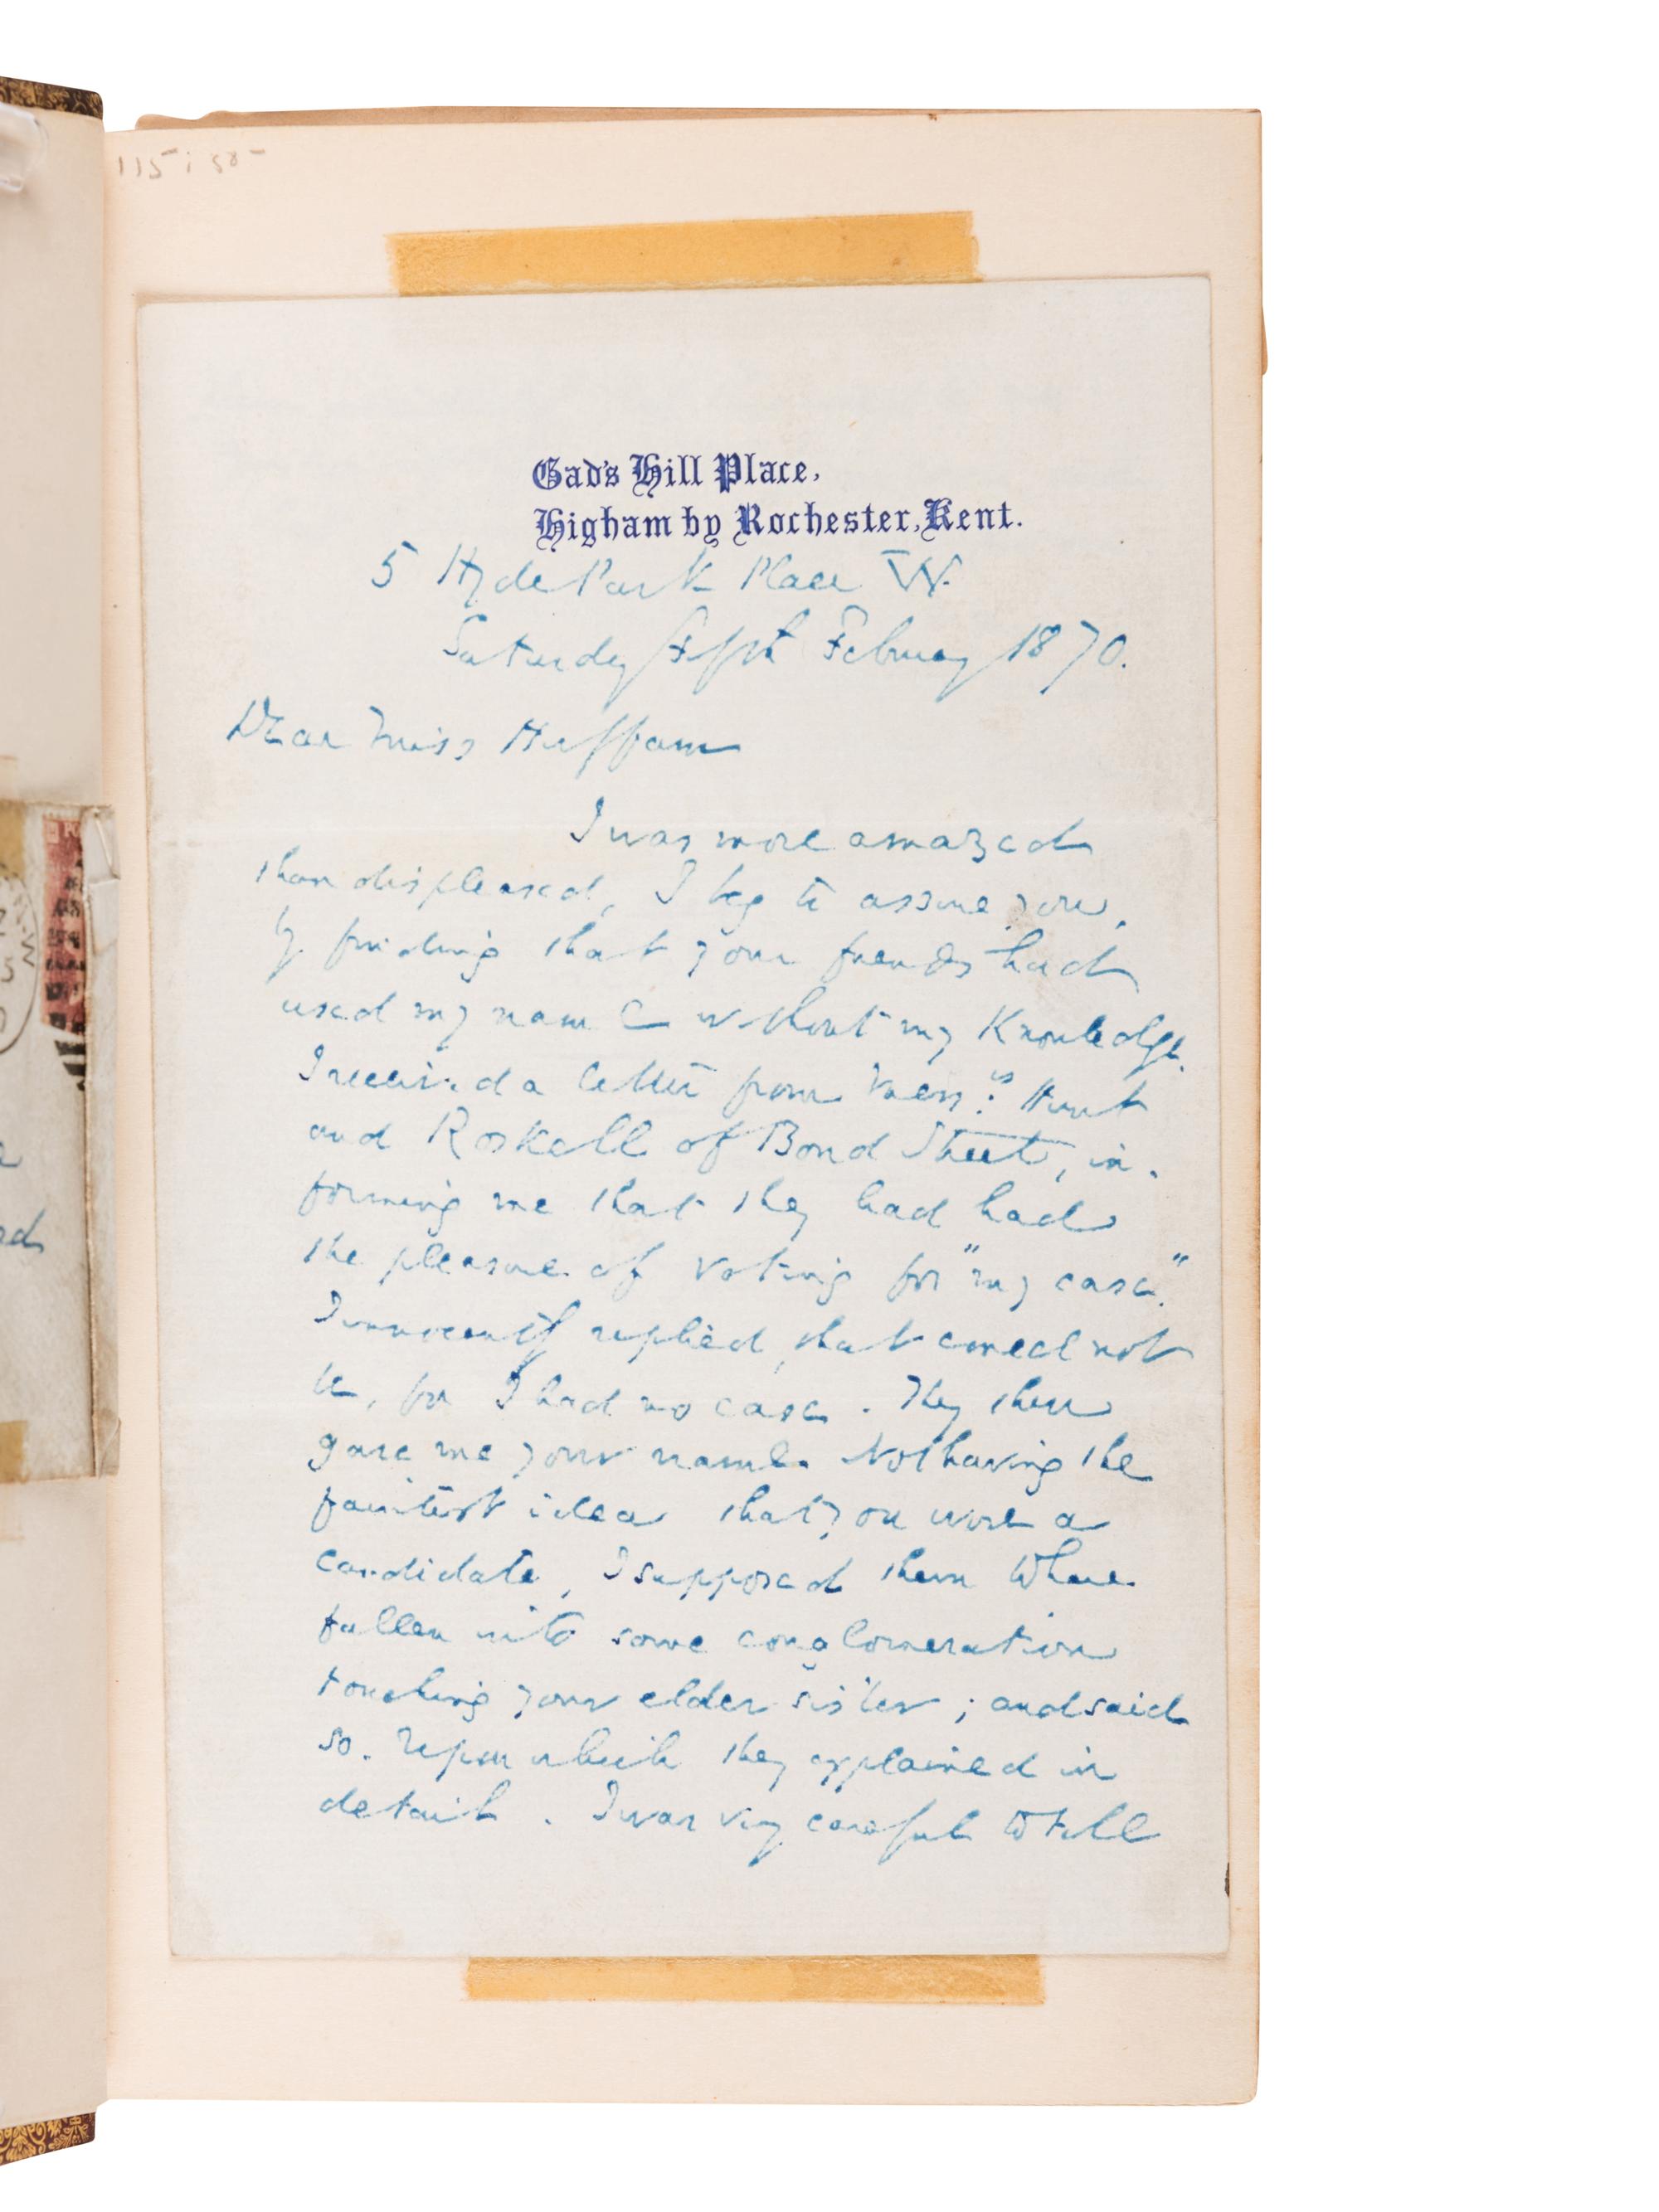 115 : 50 -
Gad's Hill Place,
Higham by Rochester, Kent.
5 Hyde Park Place W.
Saturday Fifth February 1870.
Dear Miss Huffam
I was more amazed
than displeased, I beg to assure you,
by finding that your friends had
used my name without my Knowledge.
I received a letter from Mess:rs Hunt
and Roskell of Bond Street, in-
forming me that they had had
the pleasure of voting for "my case."
I innocently replied, that could not
be, for I had no case. They then
gave me your name. Not having the
faintest idea that you were a
candidate, I supposed them to have
fallen into some conglomeration
touching your elder sister; and said
so. Upon which they explained in
detail. I was very careful to tell